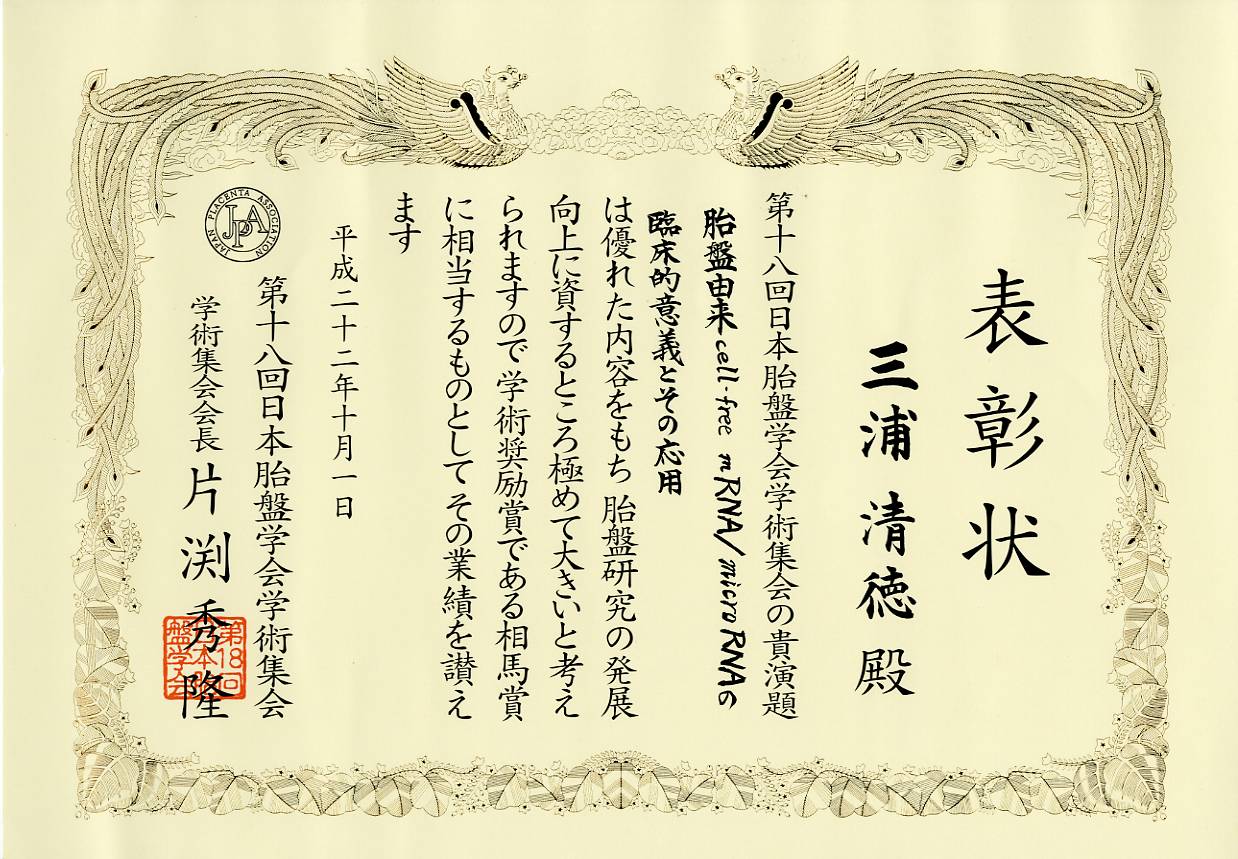 表彰状
三浦清徳 殿
第十八回日本胎盤学会学術集会の貴演題
胎盤由来cell-free mRNA/microRNAの
臨床的意義とその応用
は優れた内容をもち 胎盤研究の発展
向上に資するところ極めて大きいと考え
られますので学術奨励賞である相馬賞
に相当するものとしてその業績を讃え
ます
平成二十二年十月一日
第十八回日本胎盤学会学術集会
学術集会会長 片渕秀隆
JAPAN PLACENTA ASSOCIATION
JPA
第18回